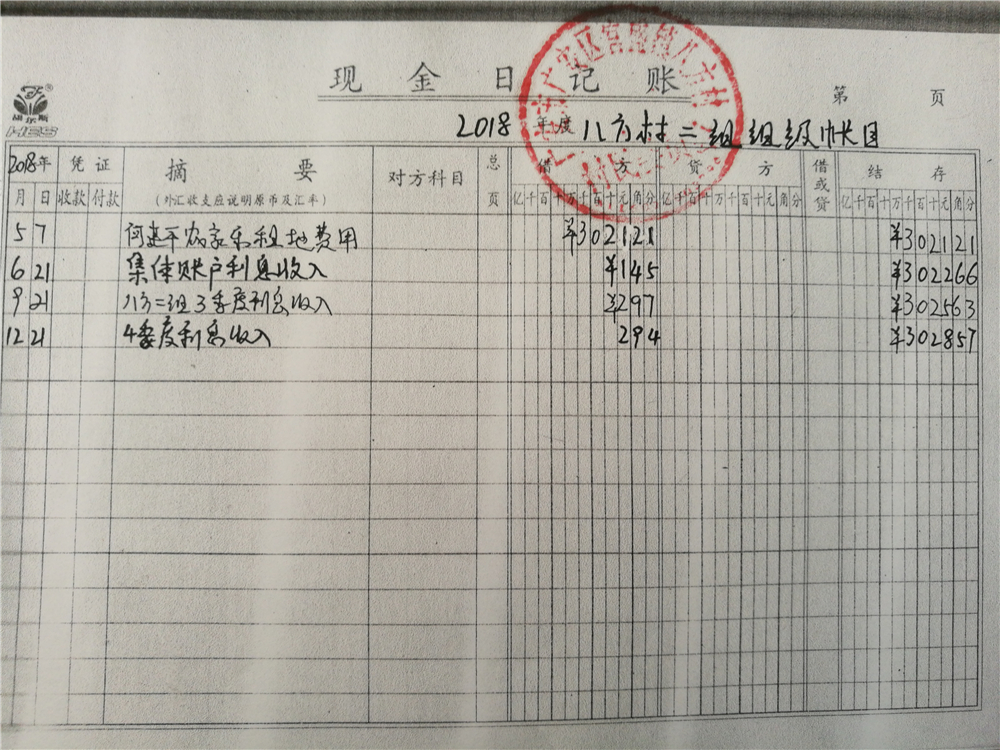 现金日记账
第 页
2018 年度 八方村二组组级帐目
HES
2018年 凭证 摘要 对方科目 总页 借方 贷方 借或贷 结存
月 日 收款 付款 (外汇收支应说明原币及汇率) 亿千百十万千百十元角分 亿千百十万千百十元角分 亿千百十万千百十元角分
5 7 何建平农家乐租地费用 ¥302121 ¥302121
6 21 集体账户利息收入 ¥145 ¥302266
9 21 八方二组3季度利息收入 ¥297 ¥302563
12 21 4季度利息收入 294 ¥302857